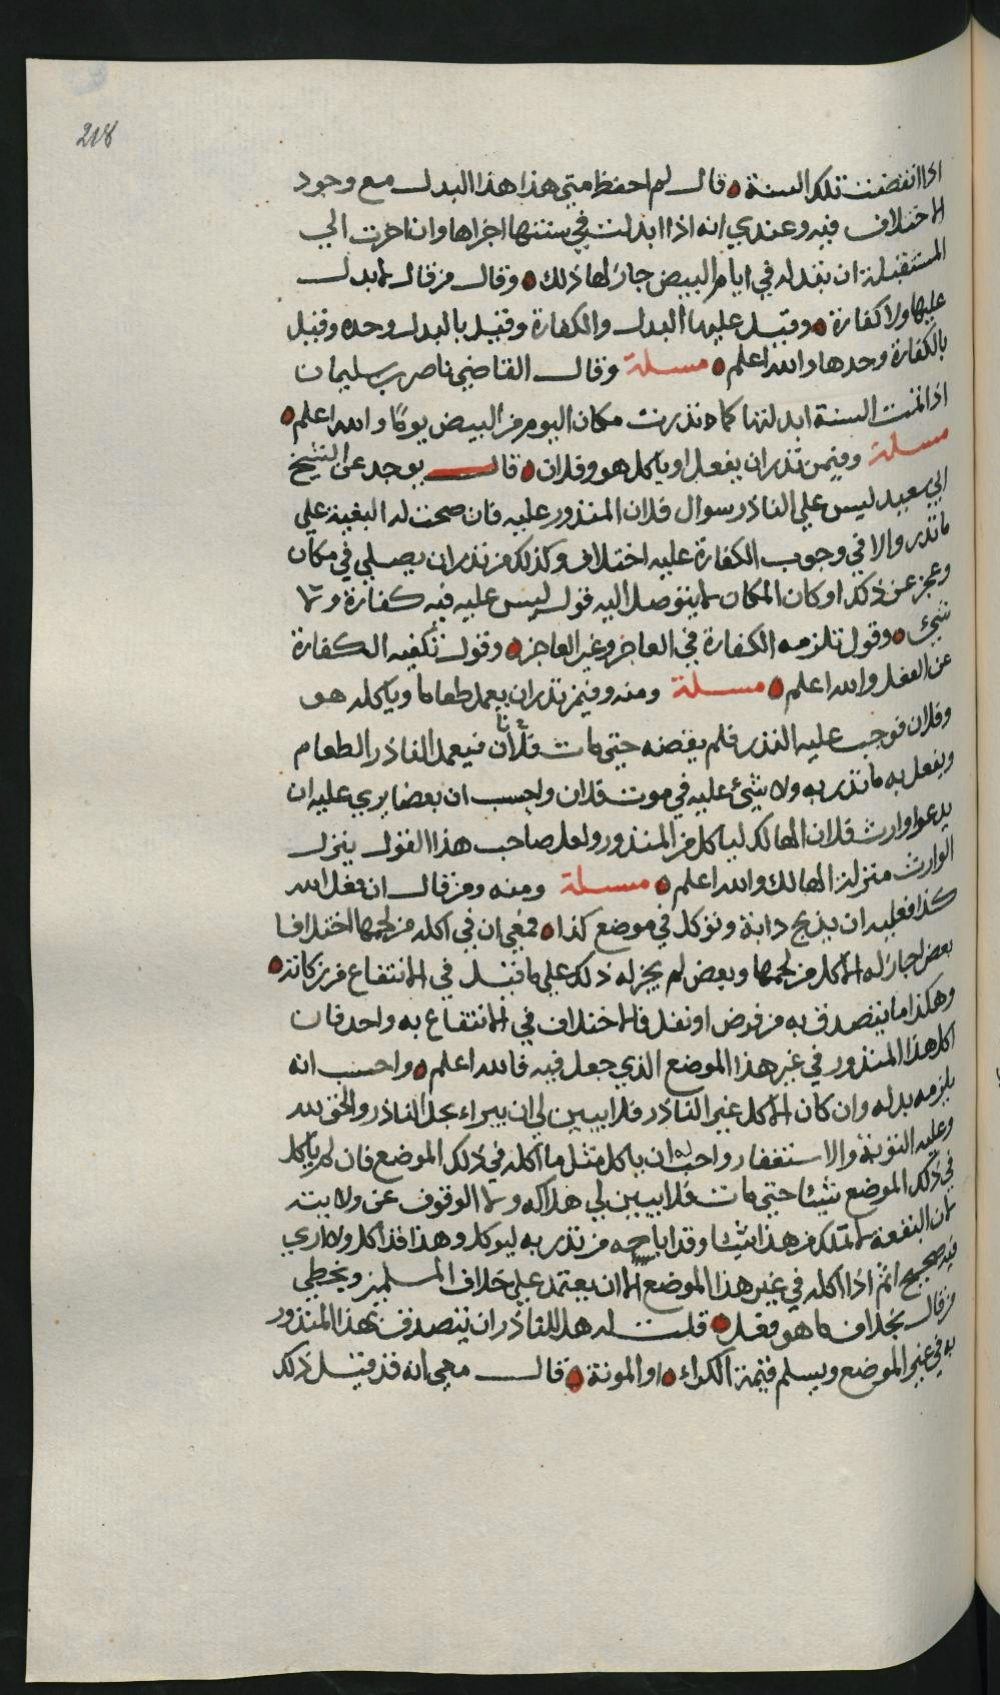 218
اذا انقضت تلك السنة قال لم احفظ متى هذا هذا البدل مع وجود
الاختلاف فيه وعندي انه اذا ابدلت في سنتها اجزاها وان اخرت الى
المستقبلة ان تبدله في ايام البيض جائز لها ذلك وقال من قال لا بدل
عليها ولا كفارة وقيل عليها البدل والكفارة وقيل بالبدل وحده وقيل
بالكفارة وحدها والله اعلم مسئلة وقال القاضي ناصر بن سليمان
اذا تمت السنة ابدلتها كما نذرت مكان اليوم من البيض يوما والله اعلم
مسئلة وفيمن نذر ان يفعل او ياكل هو وفلان قال يوجد عن الشيخ
ابي سعيد ليس على الناذر سوال فلان المنذور عليه فان صحت له البغية على
ما نذر والا في وجوب الكفارة عليه اختلاف وكذلك من نذر ان يصلي في مكان
وعجز عن ذلك او كان المكان لا يتوصل اليه قول ليس عليه فيه كفارة ولا
شيء وقول تلزمه الكفارة في العاجز وغير العاجز وقول تكفيه الكفارة
عن الفعل والله اعلم مسئلة ومنه وفيمن نذر ان يعمل طعاما وياكله هو
وفلان فوجب عليه النذر فلم يقضه حتى مات فلان فيعمل الناذر الطعام
ويفعل به ما نذر به ولا شيء عليه في موت فلان واحسب ان بعضا يرى عليه ان
يدعوا وارث فلان الهالك لياكل من المنذور ولعل صاحب هذا القول ينزل
الوارث منزلة الهالك والله اعلم مسئلة ومنه ومن قال ان فعل الله
كذا فعليه ان يذبح دابة وتوكل في موضع كذا فمعي ان في اكله من لحمها اختلافا
بعض اجاز له الاكل من لحمها وبعض لم يجز له ذلك على ما قيل في الانتفاع من زكاته
وهكذا ما يتصدق به من فرض او نفل فالاختلاف في الانتفاع به واحد فان
اكل هذا المنذور في غير هذا الموضع الذي جعل فيه فالله اعلم واحسب انه
يلزمه بدله وان كان الاكل غير الناذر فلا يبين لي ان يبراء بحل الناذر والحق لله
وعليه التوبة والاستغفار واحب له ان ياكل مثل ما اكله في ذلك الموضع فان لم ياكل
في ذلك الموضع شيئا حتى مات فلا يبين لي هلاكه ولا الوقوف عن ولايته
لان البقعة لا تملك من هذا شيئا وقد اباحه من نذر به ليوكل وهذا قد اكل ولا ارى
فيه صحيح اثم اذا اكله في غير هذا الموضع الا ان يعتمد على خلاف المسلمين ويخطي
من قال بخلاف ما هو فعل قلت له هل للناذر ان يتصدق بهذا المنذور
به في غير الموضع ويسلم قيمة الكراء او المونة قال معي انه قد قيل ذلك